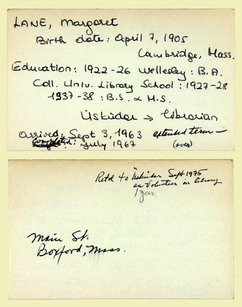 LANE, Margaret
Birth date: April 7, 1905
Cambridge, Mass.
Education: 1922-26 Wellesley: B.A.
Coll. Univ. Library School: 1927-28
1937-38: B.S. & M.S.
Üsküdar → Librarian
arrived, Sept 3, 1963 extended term -
: July 1967 (over)
Retd to Üsküdar Sept 1975
as Volunteer in library
1 year.
Main St.
Boxford, Mass.